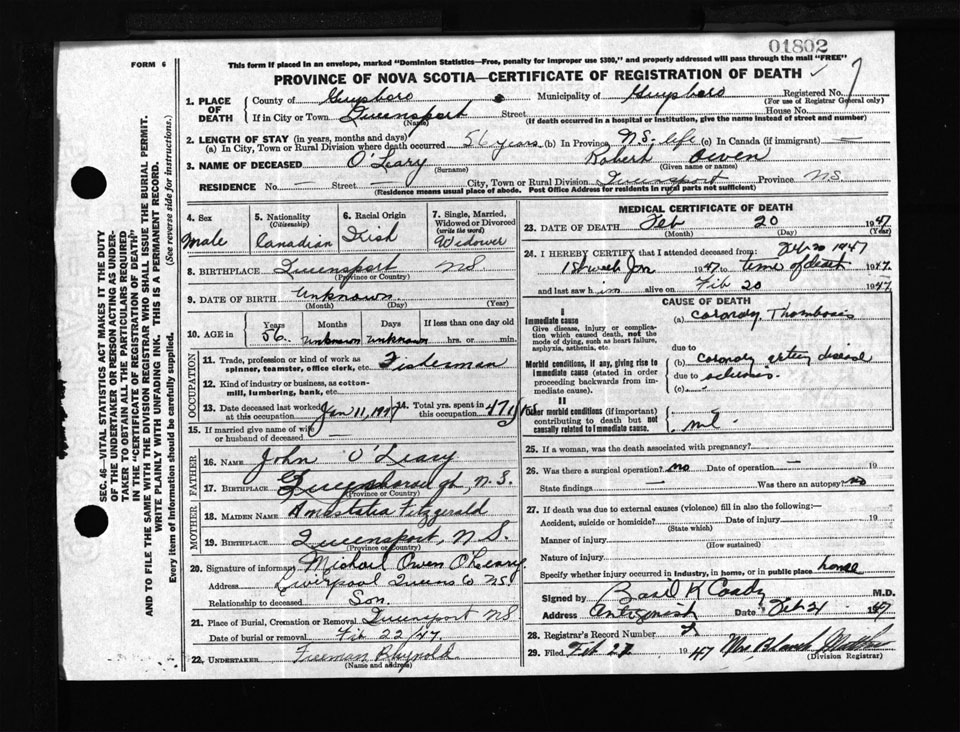 01802
FORM 6
This form if placed in an envelope, marked "Dominion Statistics—Free, penalty for improper use $300," and properly addressed will pass through the mail "FREE"
PROVINCE OF NOVA SCOTIA—CERTIFICATE OF REGISTRATION OF DEATH
SEC. 46—VITAL STATISTICS ACT MAKES IT THE DUTY
OF THE UNDERTAKER OF PERSON ACTING AS UNDER-
TAKER TO OBTAIN ALL THE PARTICULARS REQUIRED
IN THE "CERTIFICATE OF REGISTRATION OF DEATH"
AND TO FILE THE SAME WITH THE DIVISION REGISTRAR WHO SHALL ISSUE THE BURIAL PERMIT.
WRITE PLAINLY WITH UNFADING INK. THIS IS A PERMANENT RECORD.
Every item of Information should be carefully supplied. (See reverse side for instructions.)
1. PLACE OF DEATH
County of Guysboro Municipality of Guysboro Registered No.
(For use of Registrar General only)
If in City or Town Queensport Street House No.
(Name) (If death occurred in a hospital or institution, give the name instead of street and number)
2. LENGTH OF STAY (in years, months and days)
(a) In City, Town or Rural Division where death occurred 56 years (b) In Province N.S. life (c) In Canada (if immigrant) —
3. NAME OF DECEASED O'Leary Robert Owen
(Surname) (Given name or names)
RESIDENCE No. — Street — City, Town or Rural Division Queensport Province NS
(Residence means usual place of abode. Post Office Address for residents in rural parts not sufficient)
4. Sex
Male
5. Nationality
(Citizenship)
Canadian
6. Racial Origin
Irish
7. Single, Married, Widowed or Divorced
(write the word)
Widower
8. BIRTHPLACE Queensport NS
(Province or Country)
9. DATE OF BIRTH Unknown
(Month) (Day) (Year)
10. AGE in Years Months Days If less than one day old
56 unknown unknown hrs. or min.
OCCUPATION
11. Trade, profession or kind of work as
spinner, teamster, office clerk, etc. Fisherman
12. Kind of industry or business, as cotton-
mill, lumbering, bank, etc.
13. Date deceased last worked at this occupation Jan 11, 1947 14. Total yrs. spent in this occupation 47
15. If married give name of wife or husband of deceased —
FATHER
16. NAME John O'Leary
17. BIRTHPLACE Queensborough, N.S.
(Province or Country)
MOTHER
18. MAIDEN NAME Anastatia Fitzgerald
19. BIRTHPLACE Queensport, N.S.
(Province or Country)
20. Signature of informant Michael Owen O'Leary
Address Liverpool Queens Co NS.
Relationship to deceased Son.
21. Place of Burial, Cremation or Removal Queensport NS
Date of burial or removal Feb 22/47.
22. UNDERTAKER Freeman Rhynold
(Name and address)
MEDICAL CERTIFICATE OF DEATH
23. DATE OF DEATH Feb 20 1947
(Month) (Day) (Year)
24. I HEREBY CERTIFY that I attended deceased from: Feb 20 1947
1st week Jan 1947 to time of death 1947.
and last saw him alive on Feb 20 1947
CAUSE OF DEATH
I
Immediate cause
Give disease, injury or complica-
tion which caused death, not the
mode of dying, such as heart failure,
asphyxia, asthenia, etc.
(a) coronary Thrombosis
due to
Morbid conditions, if any, giving rise to
immediate cause (stated in order
proceeding backwards from im-
mediate cause).
(b) coronary artery disease
due to sclerosis.
(c)
II
Other morbid conditions (if important)
contributing to death but not
causally related to immediate cause.
nil
25. If a woman, was the death associated with pregnancy?
26. Was there a surgical operation? no Date of operation — 19
State findings — Was there an autopsy? no
27. If death was due to external causes (violence) fill in also the following:—
Accident, suicide or homicide? Date of injury 19
(State which)
Manner of injury
(How sustained)
Nature of injury
Specify whether injury occurred in industry, in home, or in public place home
Signed by Basil K Coady M.D.
Address Antigonish Date Feb 21 1947
28. Registrar's Record Number 2
29. Filed Feb 1947 Mrs
(Division Registrar)